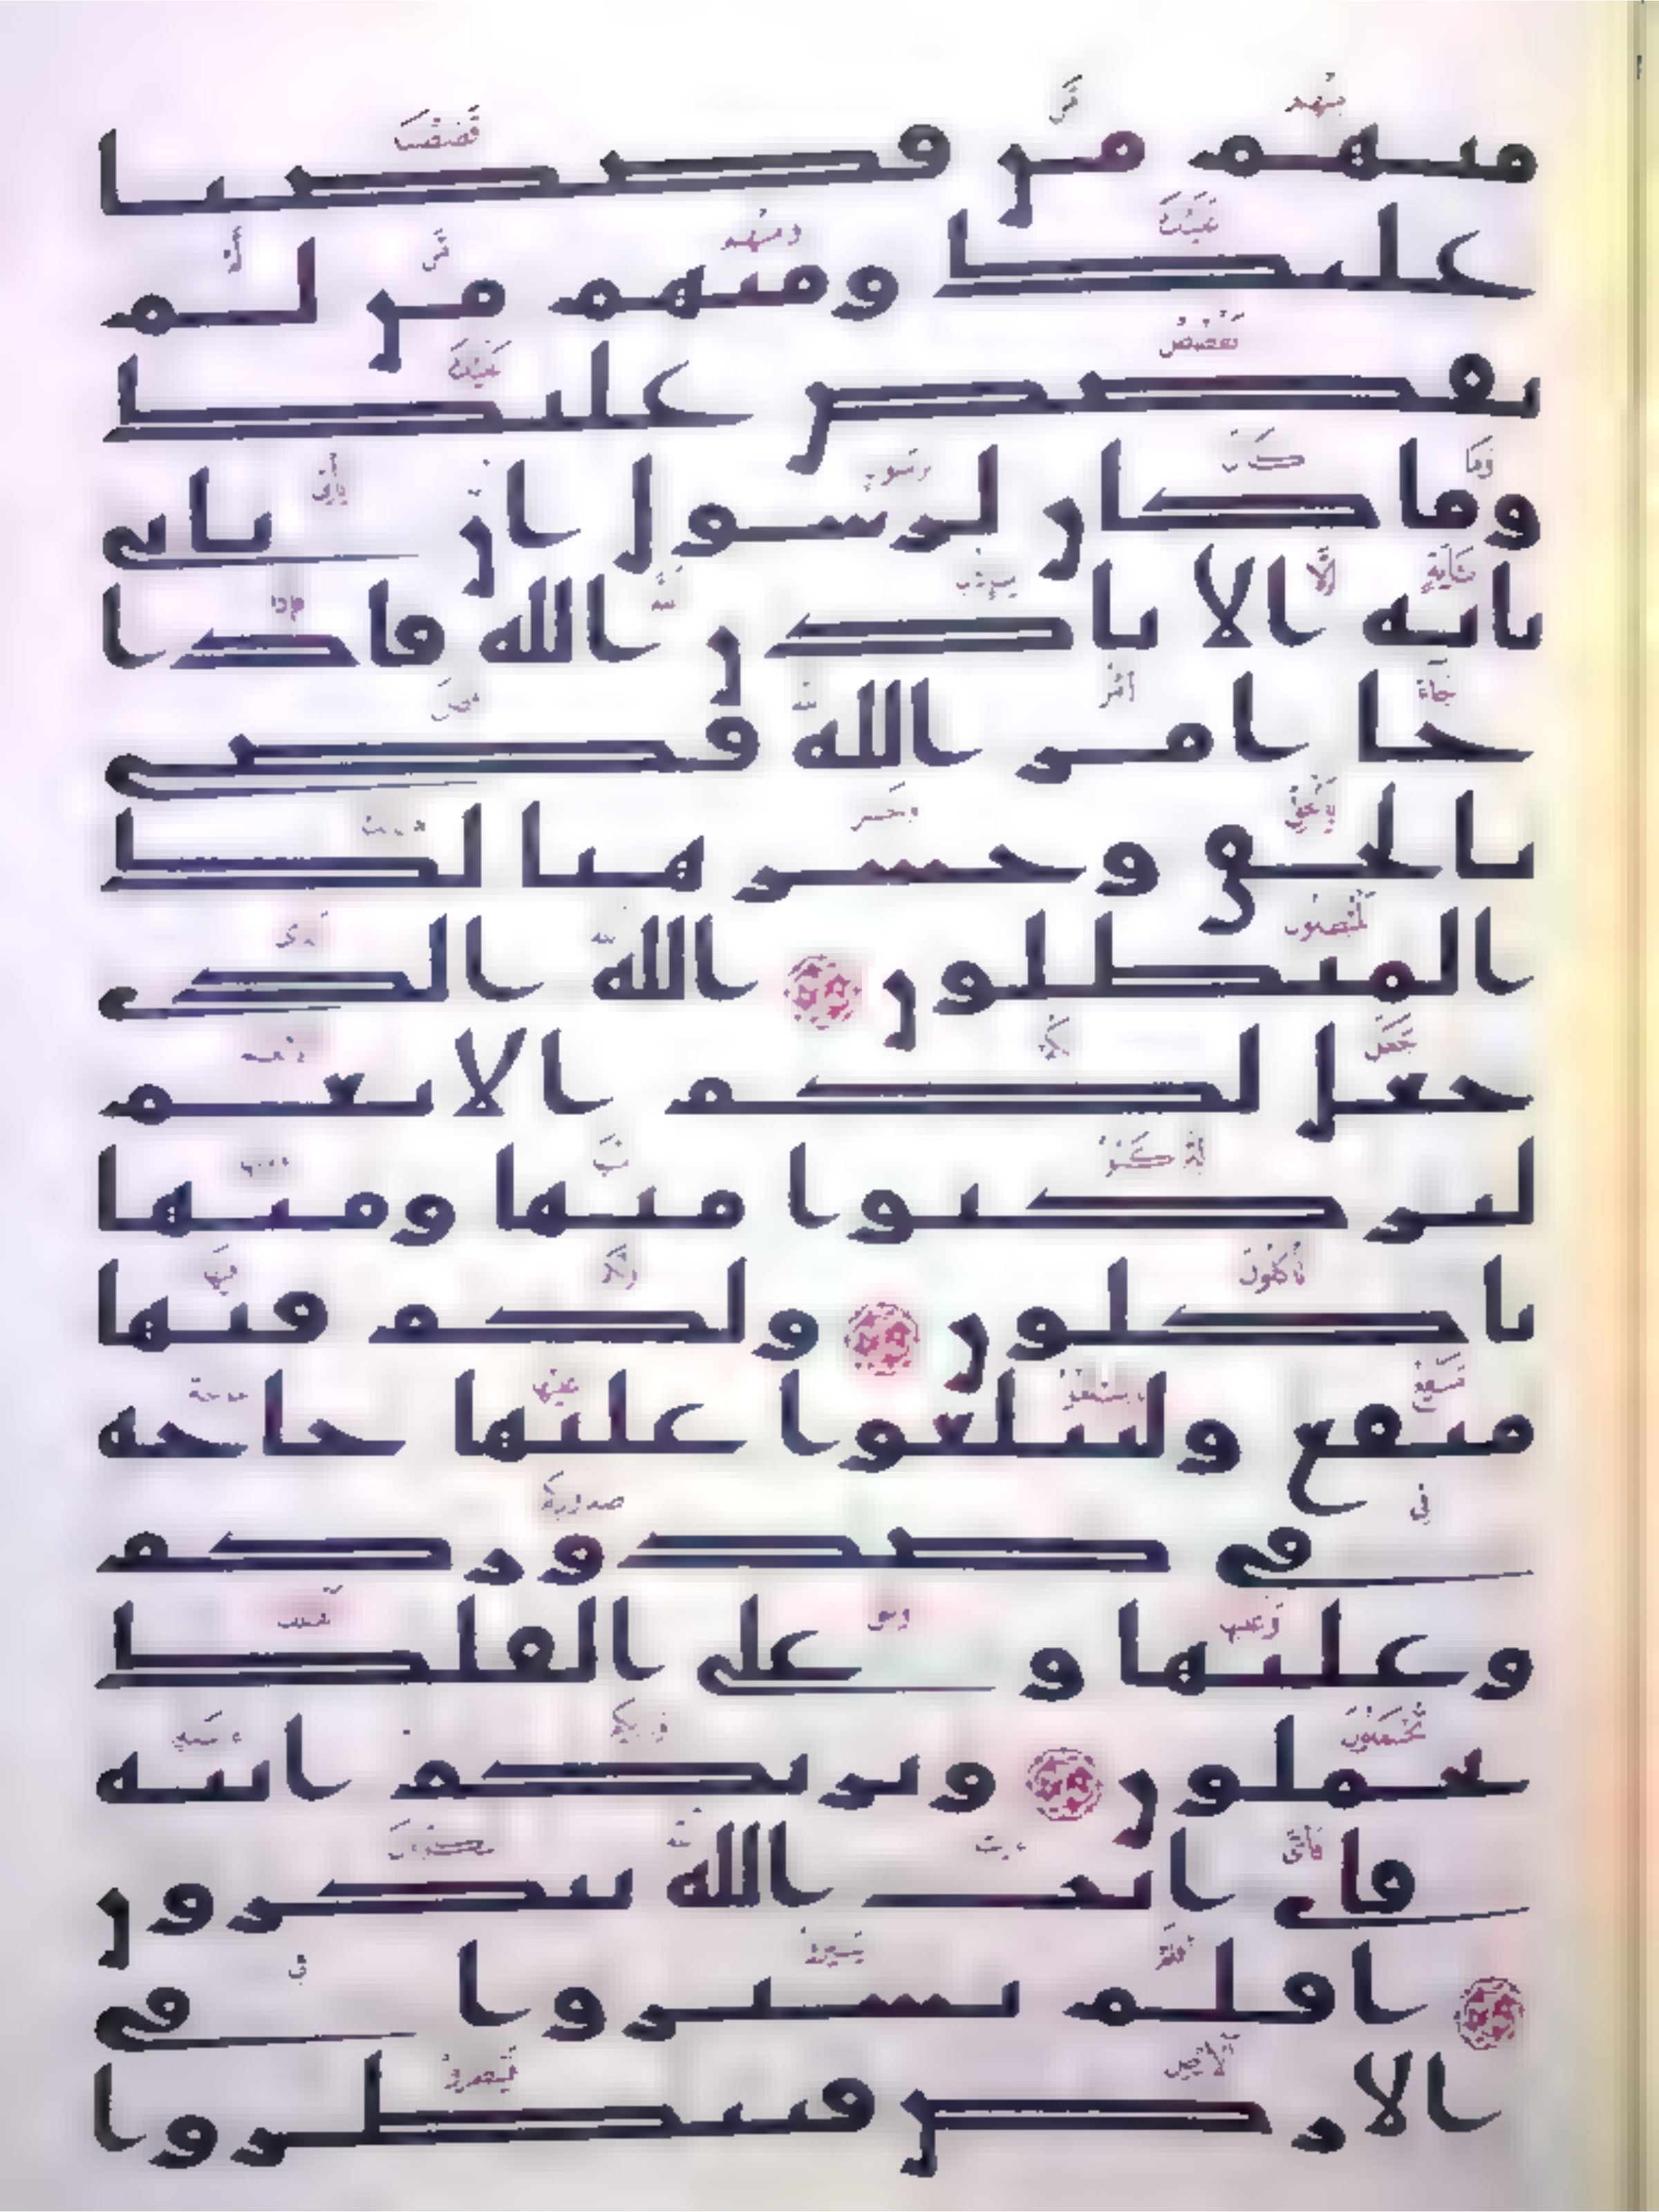 منهم من قصصنا
عليك ومنهم من لم
نقصص عليك
وما كان لرسول ان ياتي
بايه الا باذن الله فاذا
جا امر الله قضي
بالحق وخسر هنالك
المبطلون الله الذي
جعل لكم الانعم
لتركبوا منها ومنها
تاكلون ولكم فيها
منفع ولتبلغوا عليها حاجه
في صدوركم
وعليها و على الفلك
تحملون ويريكم ايته
فاي ايت الله تنكرون
افلم يسيروا في
الارض فينظروا